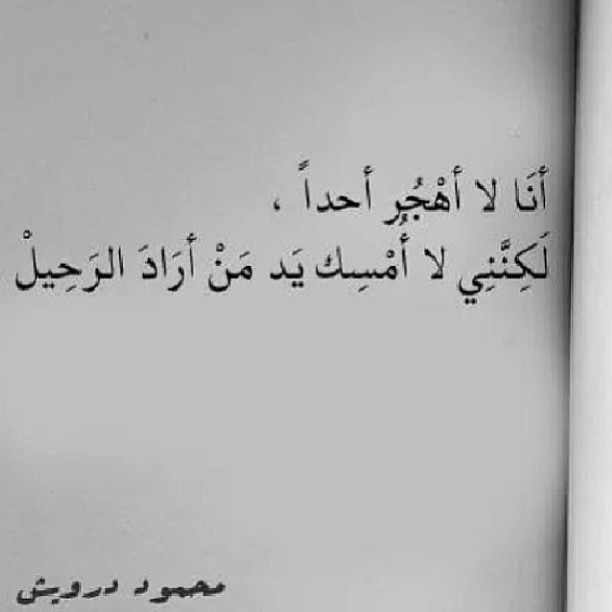 أنَا لا أهْجُر أحداً ،
لَكِنَّنِي لا أُمْسِك يَد مَنْ أرَادَ الرَحِيلْ
محمود درويش